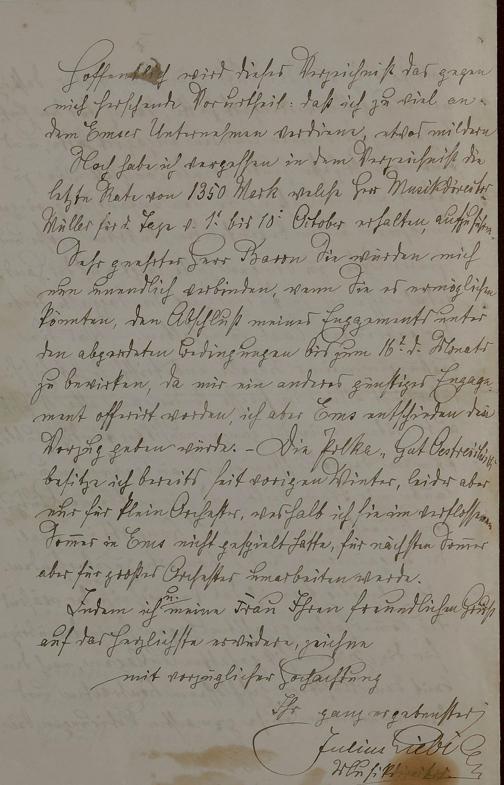 Hoffentlich wird dieses Verzeichniß das gegen
mich herschende Vorurtheil: daß ich zu viel an
dem Emser Unternehmen verdiene, etwas mildern
Noch habe ich vergessen in dem Verzeichniß die
letzte Rate von 1350 Mark welche Herr Musikdirector
Müller für d. Tage v. 1t bis 10t October erhalten, aufzuführen.
Sehr geehrter Herr Baron Sie würden mich
nun unendlich verbinden, wenn Sie es ermöglichen
könnten, den Abschluß meines Engagements unter
den abgeredeten Bedingungen bis zum 16t d. Monats
zu bewirken, da mir ein anderes günstiges Engage-
ment offerirt worden, ich aber Ems entschieden den
Vorzug geben würde. – Die Polka „Gut Oestreichisch“
besitze ich bereits seit vorigen Winter, leider aber
nur für klein Orchester, weshalb ich sie im verflossenen
Sommer in Ems nicht gespielt hatte, für nächsten Sommer
aber für großes Orchester umarbeiten werde.
Indem ich u. meine Frau Ihren freundlichen Gruß
auf das herzlichste erwidere, zeichne
mit vorzüglicher Hochachtung
Ihr ganz ergebenster
Julius Liebi
Musikdirector.